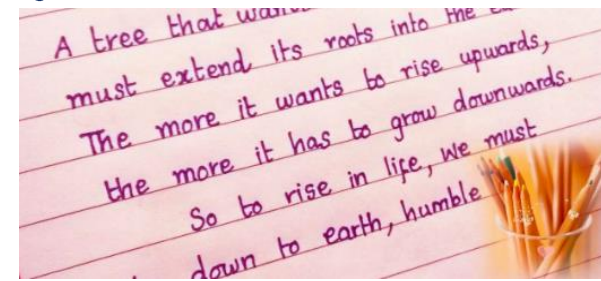 A tree that
must extend its roots into the
The more it wants to rise upwards,
the more it has to grow downwards.
So to rise in life, we must
down to earth, humble